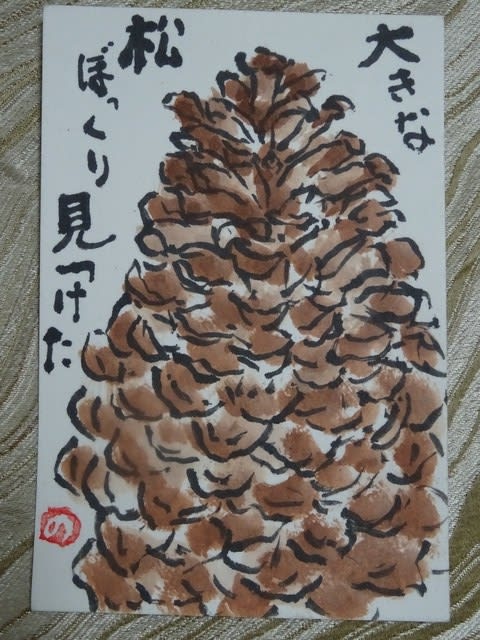 大きな
松
ぼっくり
見つけた